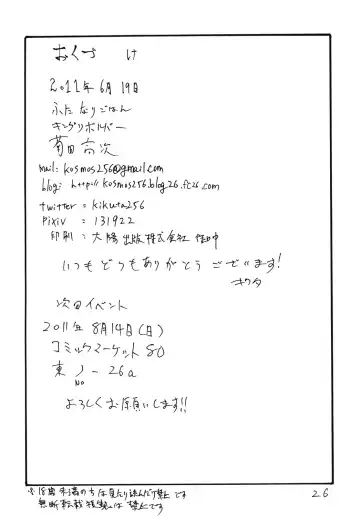 おくづけ
2011年6月19日
ふたなりごはん
キングリボルバー
菊田高次
mail: kosmos256@gmail.com
blog: http://kosmos256.blog.26.fc2.com
twitter = kikuta256
Pixiv : 131922
印刷 : 大陽出版株式会社
いつもどうもありがとうございます!
キクタ
次回イベント
2011年8月14日(日)
コミックマーケット80
東ノ-26a
No
よろしくお願いします!!
※18歳未満の方は見たり読んだり禁止です
無断転載複製は禁止です
26